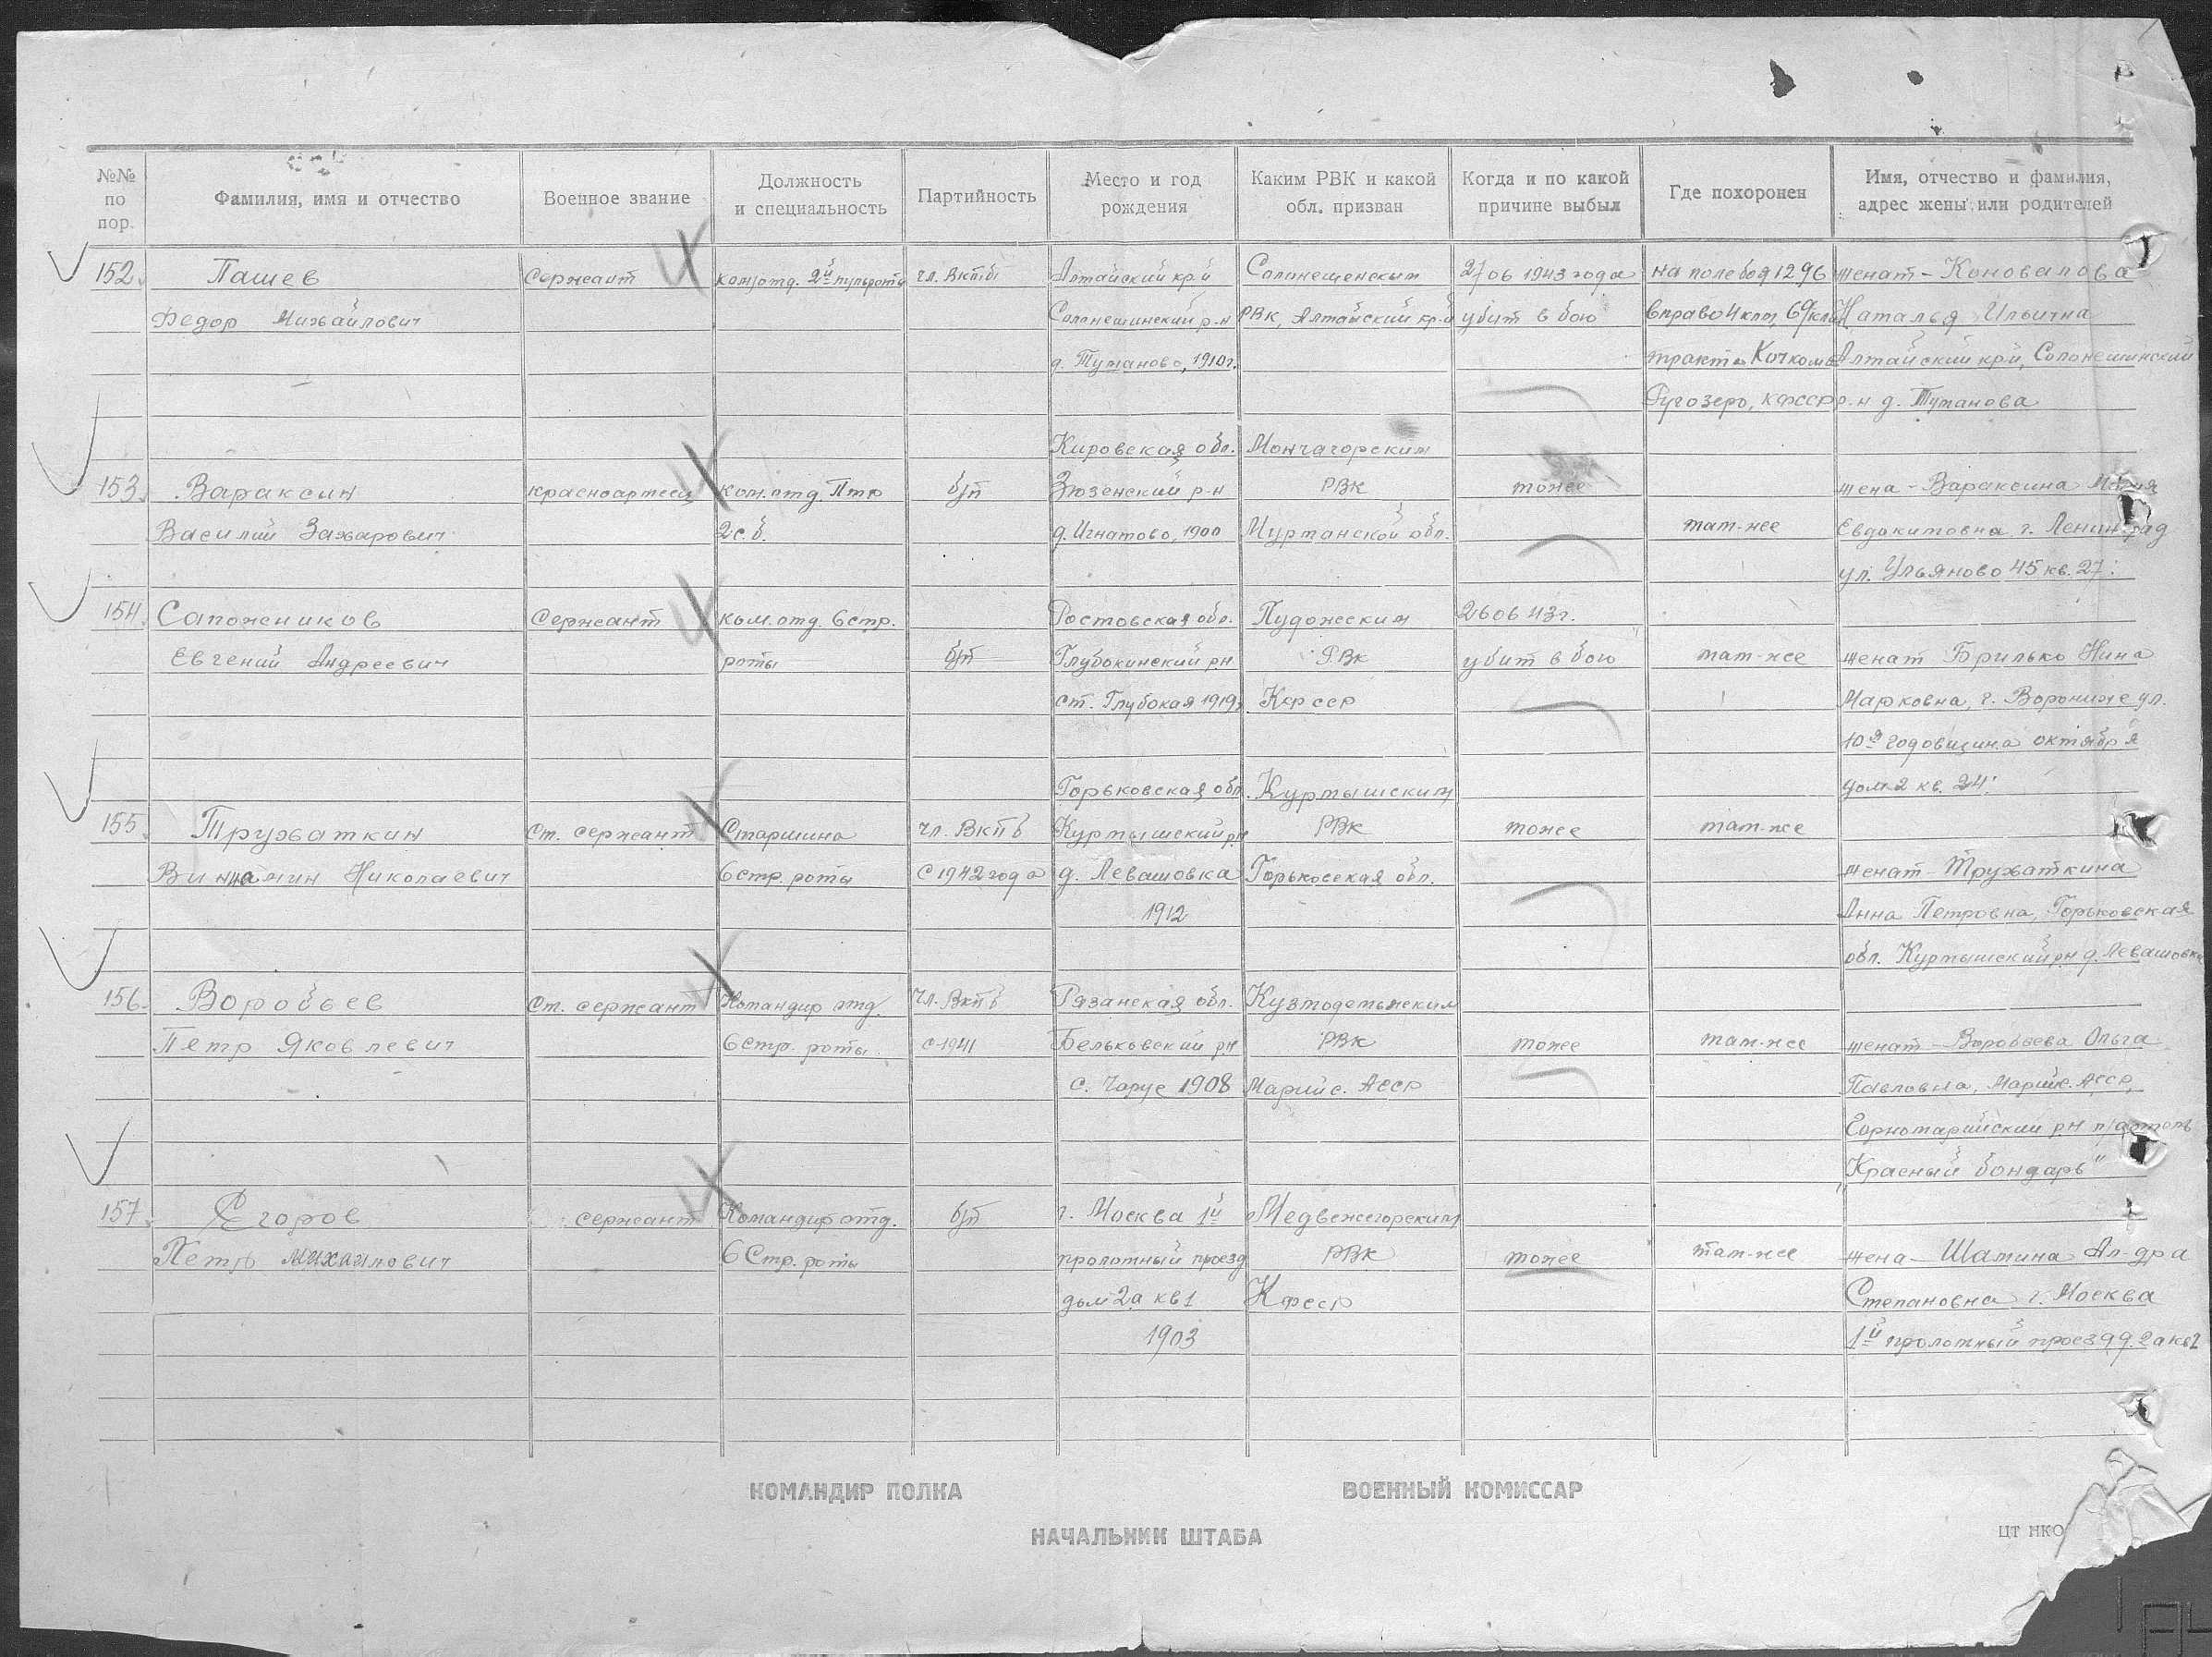 №№ по пор. | Фамилия, имя и отчество | Военное звание | Должность и специальность | Партийность | Место и год рождения | Каким РВК и какой обл. призван | Когда и по какой причине выбыл | Где похоронен | Имя, отчество и фамилия, адрес жены или родителей
152. | Пашев | Сержант | ком. отд. 2й пульроты | чл. Вкп/б/ | Алтайский кр-й | Солонешенским | 27 06 1943 года | на поле боя 1296 | женат - Коновалова
Федор Михайлович | Солонешинский р-н | РВК, Алтайский кр-й | убит в бою | вправо 4 клм, 69 клм | Наталья Ильична
д. Туманово, 1910 г. | тракта Кочкома | Алтайский кр-й, Солонешинский
Ругозеро, КФССР | р-н д. Туманова
Кировская обл. | Мончагорским
153. | Вараксин | красноармеец | ком. отд. Птр | б/п | Зюзенский р-н | РВК | тоже | жена - Вараксина
Василий Захарович | 2 с.б. | д. Игнатово, 1900 | Мурманской обл. | там-же | Евдокимовна, г. Ленинград
ул. Ульяново 45 кв. 27.
154. | Сапожников | Сержант | ком. отд. 6 стр. | Ростовская обл. | Пудожским | 26 06 43 г.
Евгений Андреевич | роты | б/п | Глубокинский р-н | РВК | убит в бою | там-же | женат Брилько Нина
ст. Глубокая 1919 | Кфсср | Марковна, г. Ворониже ул.
10я годовщина октября
Горьковская обл. | Курмышским | дом 2 кв. 24.
155. | Трухаткин | Ст. сержант | Старшина | чл. Вкп б | Курмышский р-н | РВК | тоже | там-же
Николаевич | 6 стр. роты | с 1942 года | д. Левашовка | Горькосекая обл. | женат - Трухаткина
1912 | Анна Петровна, Горьковская
обл. Курмышский рн д. Левашовка
156. | Воробьев | Ст. сержант | Командир отд. | Чл. Вкп б | Рязанская обл. | Кузмодемьнским
Петр Яковлевич | 6 стр. роты | с-1941 | Бельковский рн | РВК | тоже | там-же | женат - Воробьева Ольга
с. Чарус 1908 | Марийс. Асср | Павловна, Марийс. Асср,
Горномарийский р-н п/артель
"Красный бондарь"
157. | Егоров | сержант | Командир отд. | б/п | г. Москва 1й | Медвежегорским
Петр Михаилович | 6 Стр. роты | проломный проезд | РВК | тоже | там-же | жена - Шамина Ал-дра
дом 2а кв 1 | Кфсср | Степановна г. Москва
1903 | 1й проломный проезд д. 2а кв 1
КОМАНДИР ПОЛКА | ВОЕННЫЙ КОМИССАР
НАЧАЛЬНИК ШТАБА | ЦТ НКО